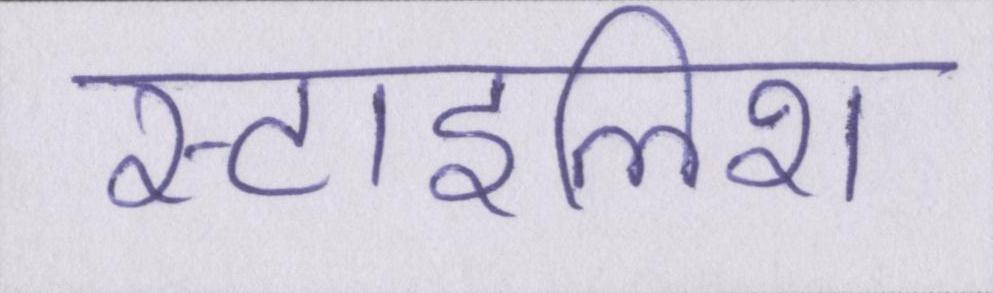 स्टाइलिश